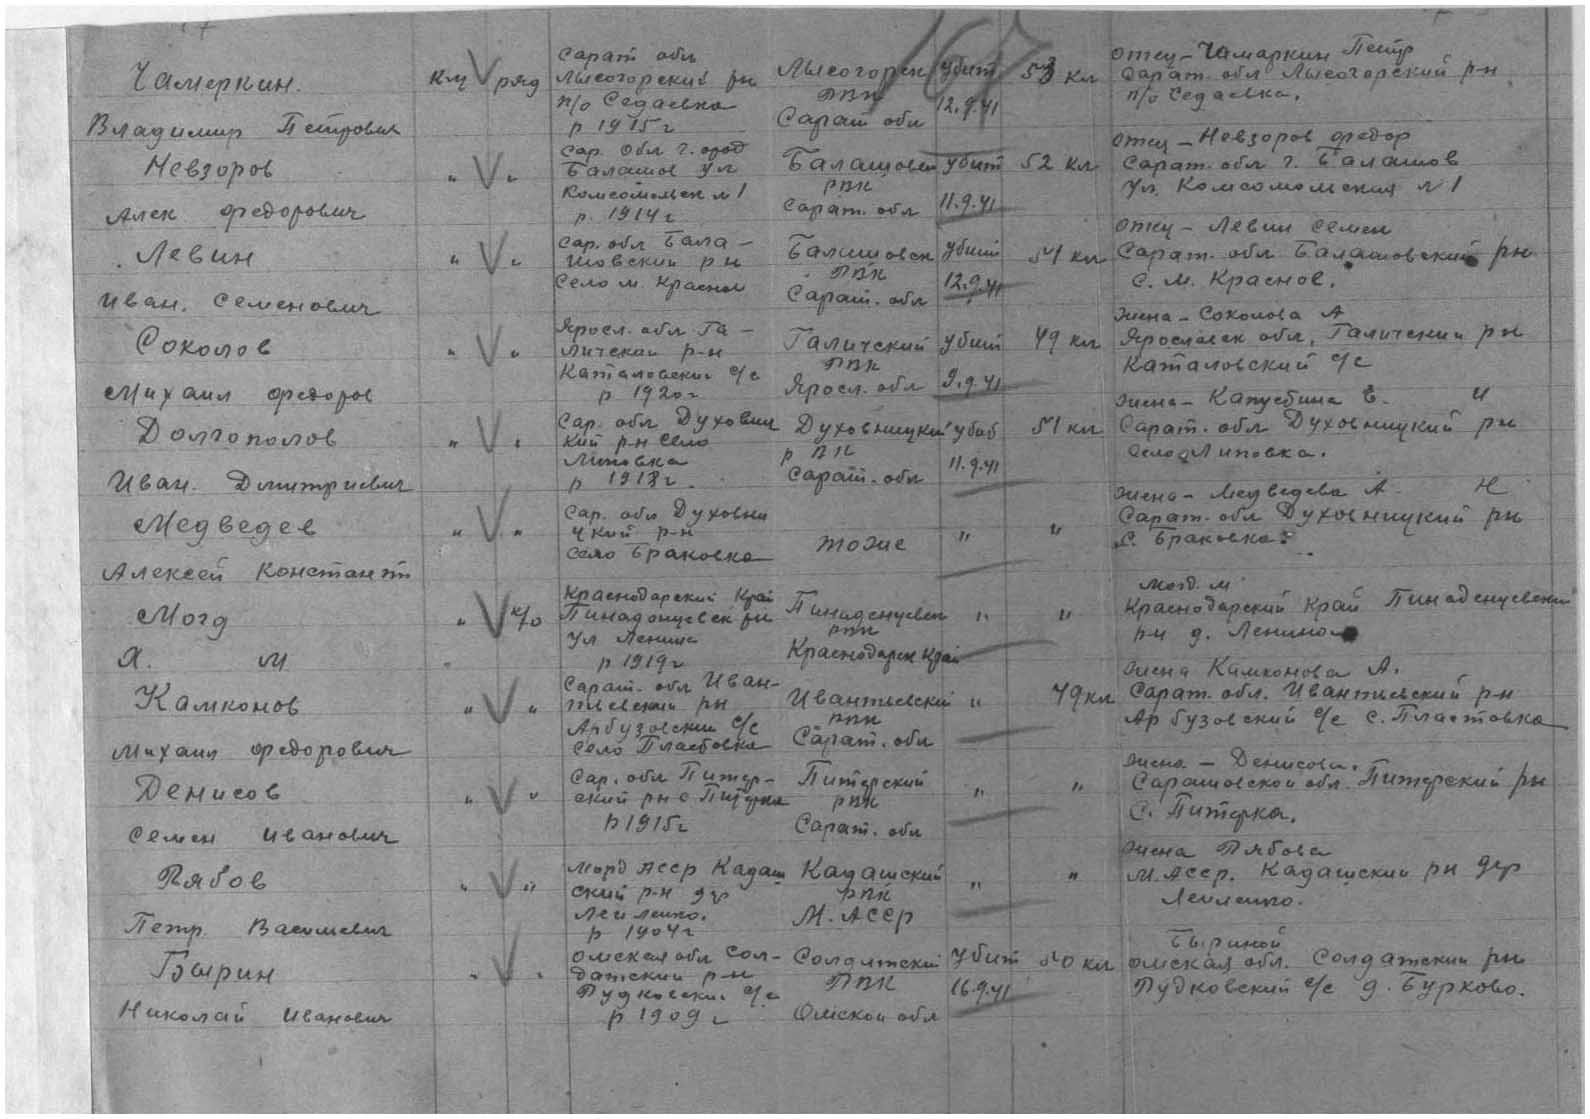 167
Чамеркин.
Владимир Петрович
кц ряд
Сарат обл
Лысогорский рн
п/о Седаевка
р 1915 г
Лысогорск
РВК
Сарат обл
убит
12.9.41
53 кл
отец – Чамаркин Петр
Сарат. обл Лысогорский р-н
п/о Седаевка.
Невзоров
Алек Федорович
" "
Сар. обл г. город
Балашов ул
Комсомольск № 1
р. 1914 г
Балашовск
РВК
Сарат. обл
убит
11.9.41
52 кл
отец – Невзоров Федор
Сарат. обл г. Балашов
ул. Комсомольская № 1
Левин
Иван. Семенович
" "
Сар. обл Бала –
шовский р-н
Село м. Красное
Балашовск
РВК
Сарат. обл
убит
12.9.41
51 кл
отец – Левин Семен
Сарат. обл Балашовский рн
с. М. Краснов.
Соколов
Михаил Федоров
" "
Яросл. обл Га –
личский р-н
Каталовский с/с
р 1920 г
Галичский
РВК
Яросл. обл
убит
9.9.41
49 кл
жена – Соколова А
Ярославск обл, Галичский рн
Каталовский с/с
Долгополов
Иван. Дмитриевич
" "
Сар. обл Духовниц
кий р-н село
Липовка
р 1918 г
Духовницкий
РВК
Сарат. обл
убит
11.9.41
51 кл
жена – Капустина Е. И
Сарат. обл Духовницкий рн
село Липовка.
Медведев
Алексей Константин
" "
Сар. обл Духовни
цкий р-н
село Браковка
тоже
"
"
жена – Медведева А. Н
Сарат. обл Духовницкий рн
с. Браковка.
Могд
Я. М
" к/о
Краснодарский Край
ул Ленина
р 1919 г
Краснодарск край
"
"
Могд. М
Краснодарский край
рн д. Ленино
Камконов
Михаил Федорович
" "
Сарат. обл Иван-
тиевский рн
Арбузовский с/с
село Пластовка
Ивантиевский
РВК
Сарат. обл
"
49 кл
жена Камконова А.
Сарат. обл. Ивантиевский р-н
Арбузовский с/с с. Пластовка
Денисов
Семен Иванович
" "
Сар. обл Питер-
ский рн с Питерка
р 1915 г
Питерский
РВК
Сарат. обл
"
"
жена – Денисова.
Саратовской обл. Питерский рн
с. Питерка.
Рябов
Петр Васильевич
" "
Морд АССР Кадаш
ский р-н дер
р 1904 г
Кадашский
РВК
М. АССР
"
"
жена Рябова
М. АССР. Кадашский рн дер
Бырин
Николай Иванович
" "
Омская обл Сол-
датский р-н
Пудковский с/с
р 1909 г
Солдатский
РВК
Омской обл
убит
16.9.41
50 кл
Быриной
Омская обл. Солдатский рн
Пудковский с/с д. Бурково.